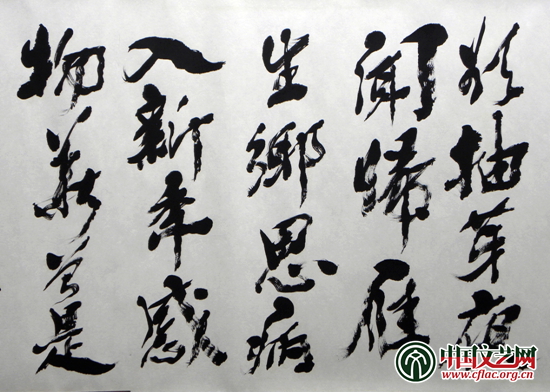 欲抽芽夜
聞歸雁
生鄉思病
入新年感
物華曾是
中国文艺网
www.cflac.org.cn